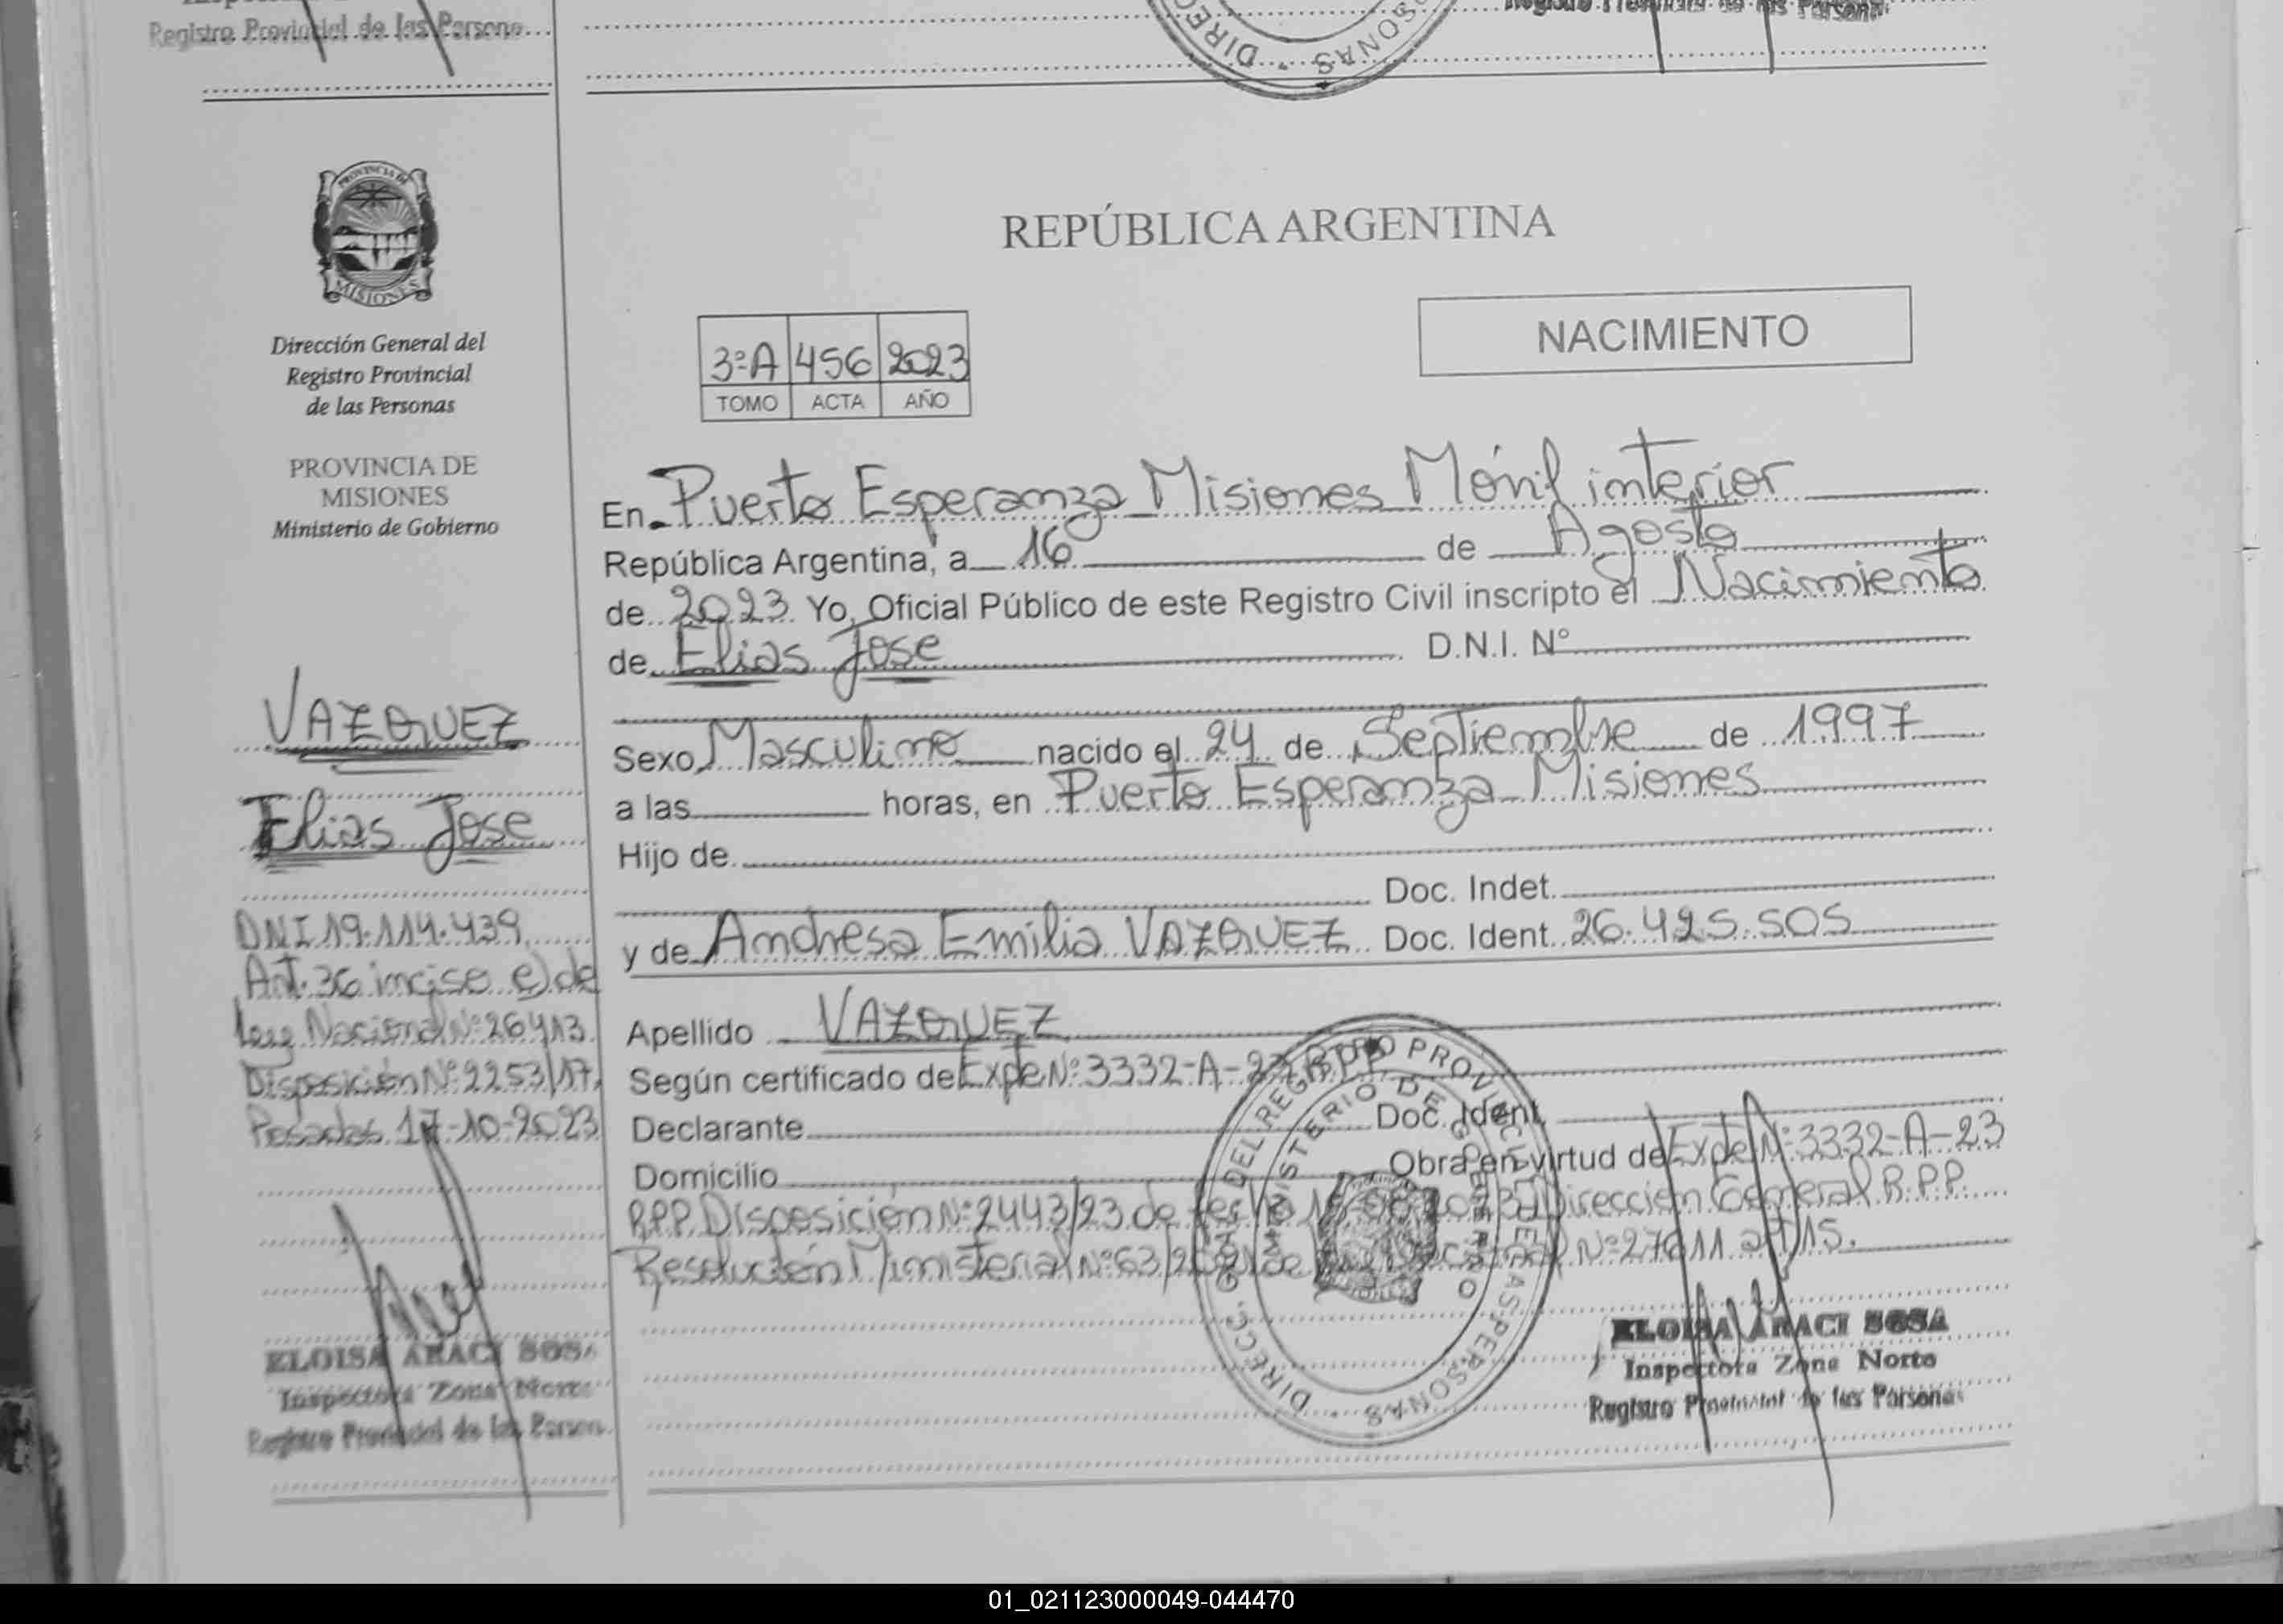 Registro Provincial de las Persona
Registro Provincial de las Persona
DIREC
SONAS
PROVINCIA DE
MISIONES
Dirección General del
Registro Provincial
de las Personas
PROVINCIA DE
MISIONES
Ministerio de Gobierno
VAZQUEZ
Elias Jose
DNI 19.114.439
Art. 36 inciso e) de
Ley Nacional Nº 26413
Disposición Nº 2253/17,
Posadas 17-10-2023
ELOISA ARACI SOSA
Inspectora Zona Norte
Registro Provincial de las Person
REPÚBLICA ARGENTINA
NACIMIENTO
3ºA 456 2023
TOMO ACTA AÑO
En Puerto Esperanza Misiones Móvil interior
República Argentina, a 16 de Agosto
de 2023 Yo, Oficial Público de este Registro Civil inscripto el Nacimiento
de Elias Jose D.N.I. Nº
Sexo Masculino nacido el 24 de Septiembre de 1997
a las horas, en Puerto Esperanza Misiones
Hijo de
Doc. Indet.
y de Andresa Emilia VAZQUEZ Doc. Ident. 26.425.505
Apellido VAZQUEZ
Según certificado de Expte Nº 3332-A-23 R.P.P.
Declarante Doc. Ident.
Domicilio Obra en virtud de Expte Nº 3332-A-23
R.P.P. Disposición Nº 2443/23 de fecha Dirección General R.P.P.
Resolución Ministerial Nº 63/ de Nº 27611 art 15.
DIRECC. GRAL. DEL REGISTRO PROVINCIAL DE LAS PERSONAS
MINISTERIO DE GOBIERNO
ELOISA ARACI SOSA
Inspectora Zona Norte
Registro Provincial de las Personas
01_021123000049-044470